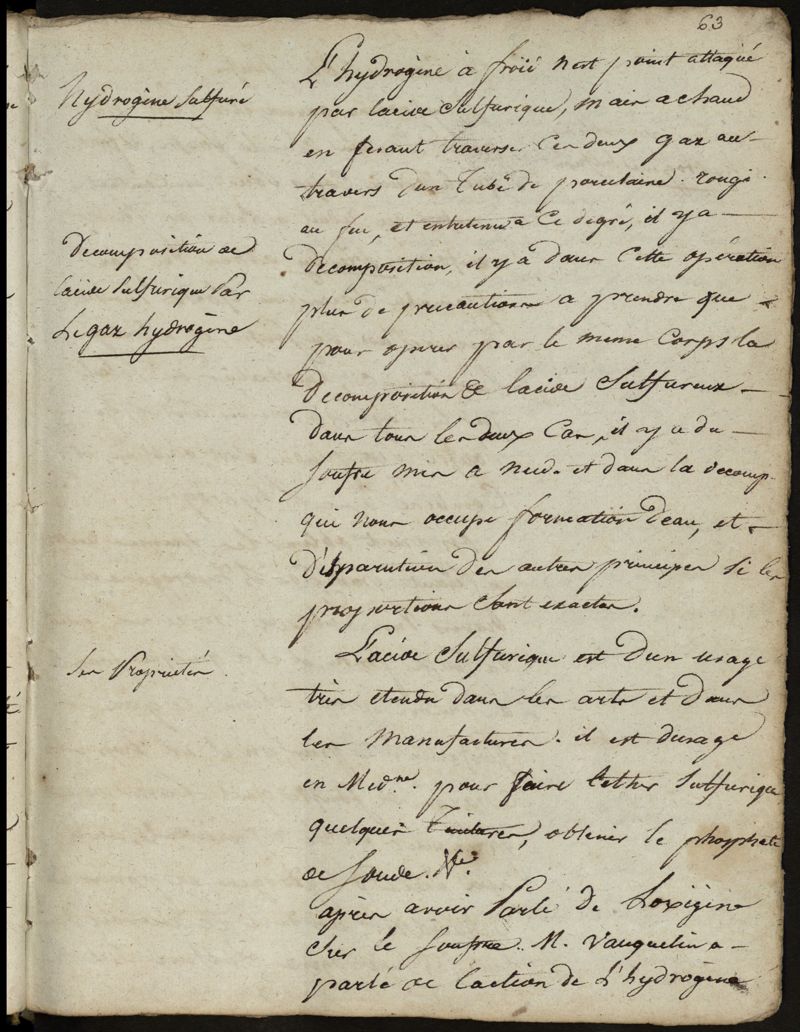 63
hydrogène sulfuré
L'hydrogène à froid n'est point attaqué
par lacide Sulfurique, mais a chaud
en fesant traverser ces deux gaz au-
travers d'un Tube de porcelaine rougi
au feu, et entretenu a ce degré, il y a
Decomposition de
lacide Sulfurique Par
Le gaz hydrogène
decomposition, il y a dans cette opération
plus de precautions a prendre que
pour operer par le meme Corps la
Decomposition de lacide Sulfureux
dans tous les deux cas, il y a du
soufre mis a nud. et dans la decomp.
qui nous occupe formation deau, et
disparution des autres principes si les
proportions sont exactes.
Ses Propriétés
L'acide Sulfurique est d'un usage
très etendu dans les arts et dans
les Manufactures. il est dusage
en Med.ne pour faire lether Sulfurique
quelques Teintures, obtenir le phosphate
de Soude.
après avoir Parlé de Loxigène
ches le Soufre. M. Vauquelin a
parlé de laction de L'hydrogène